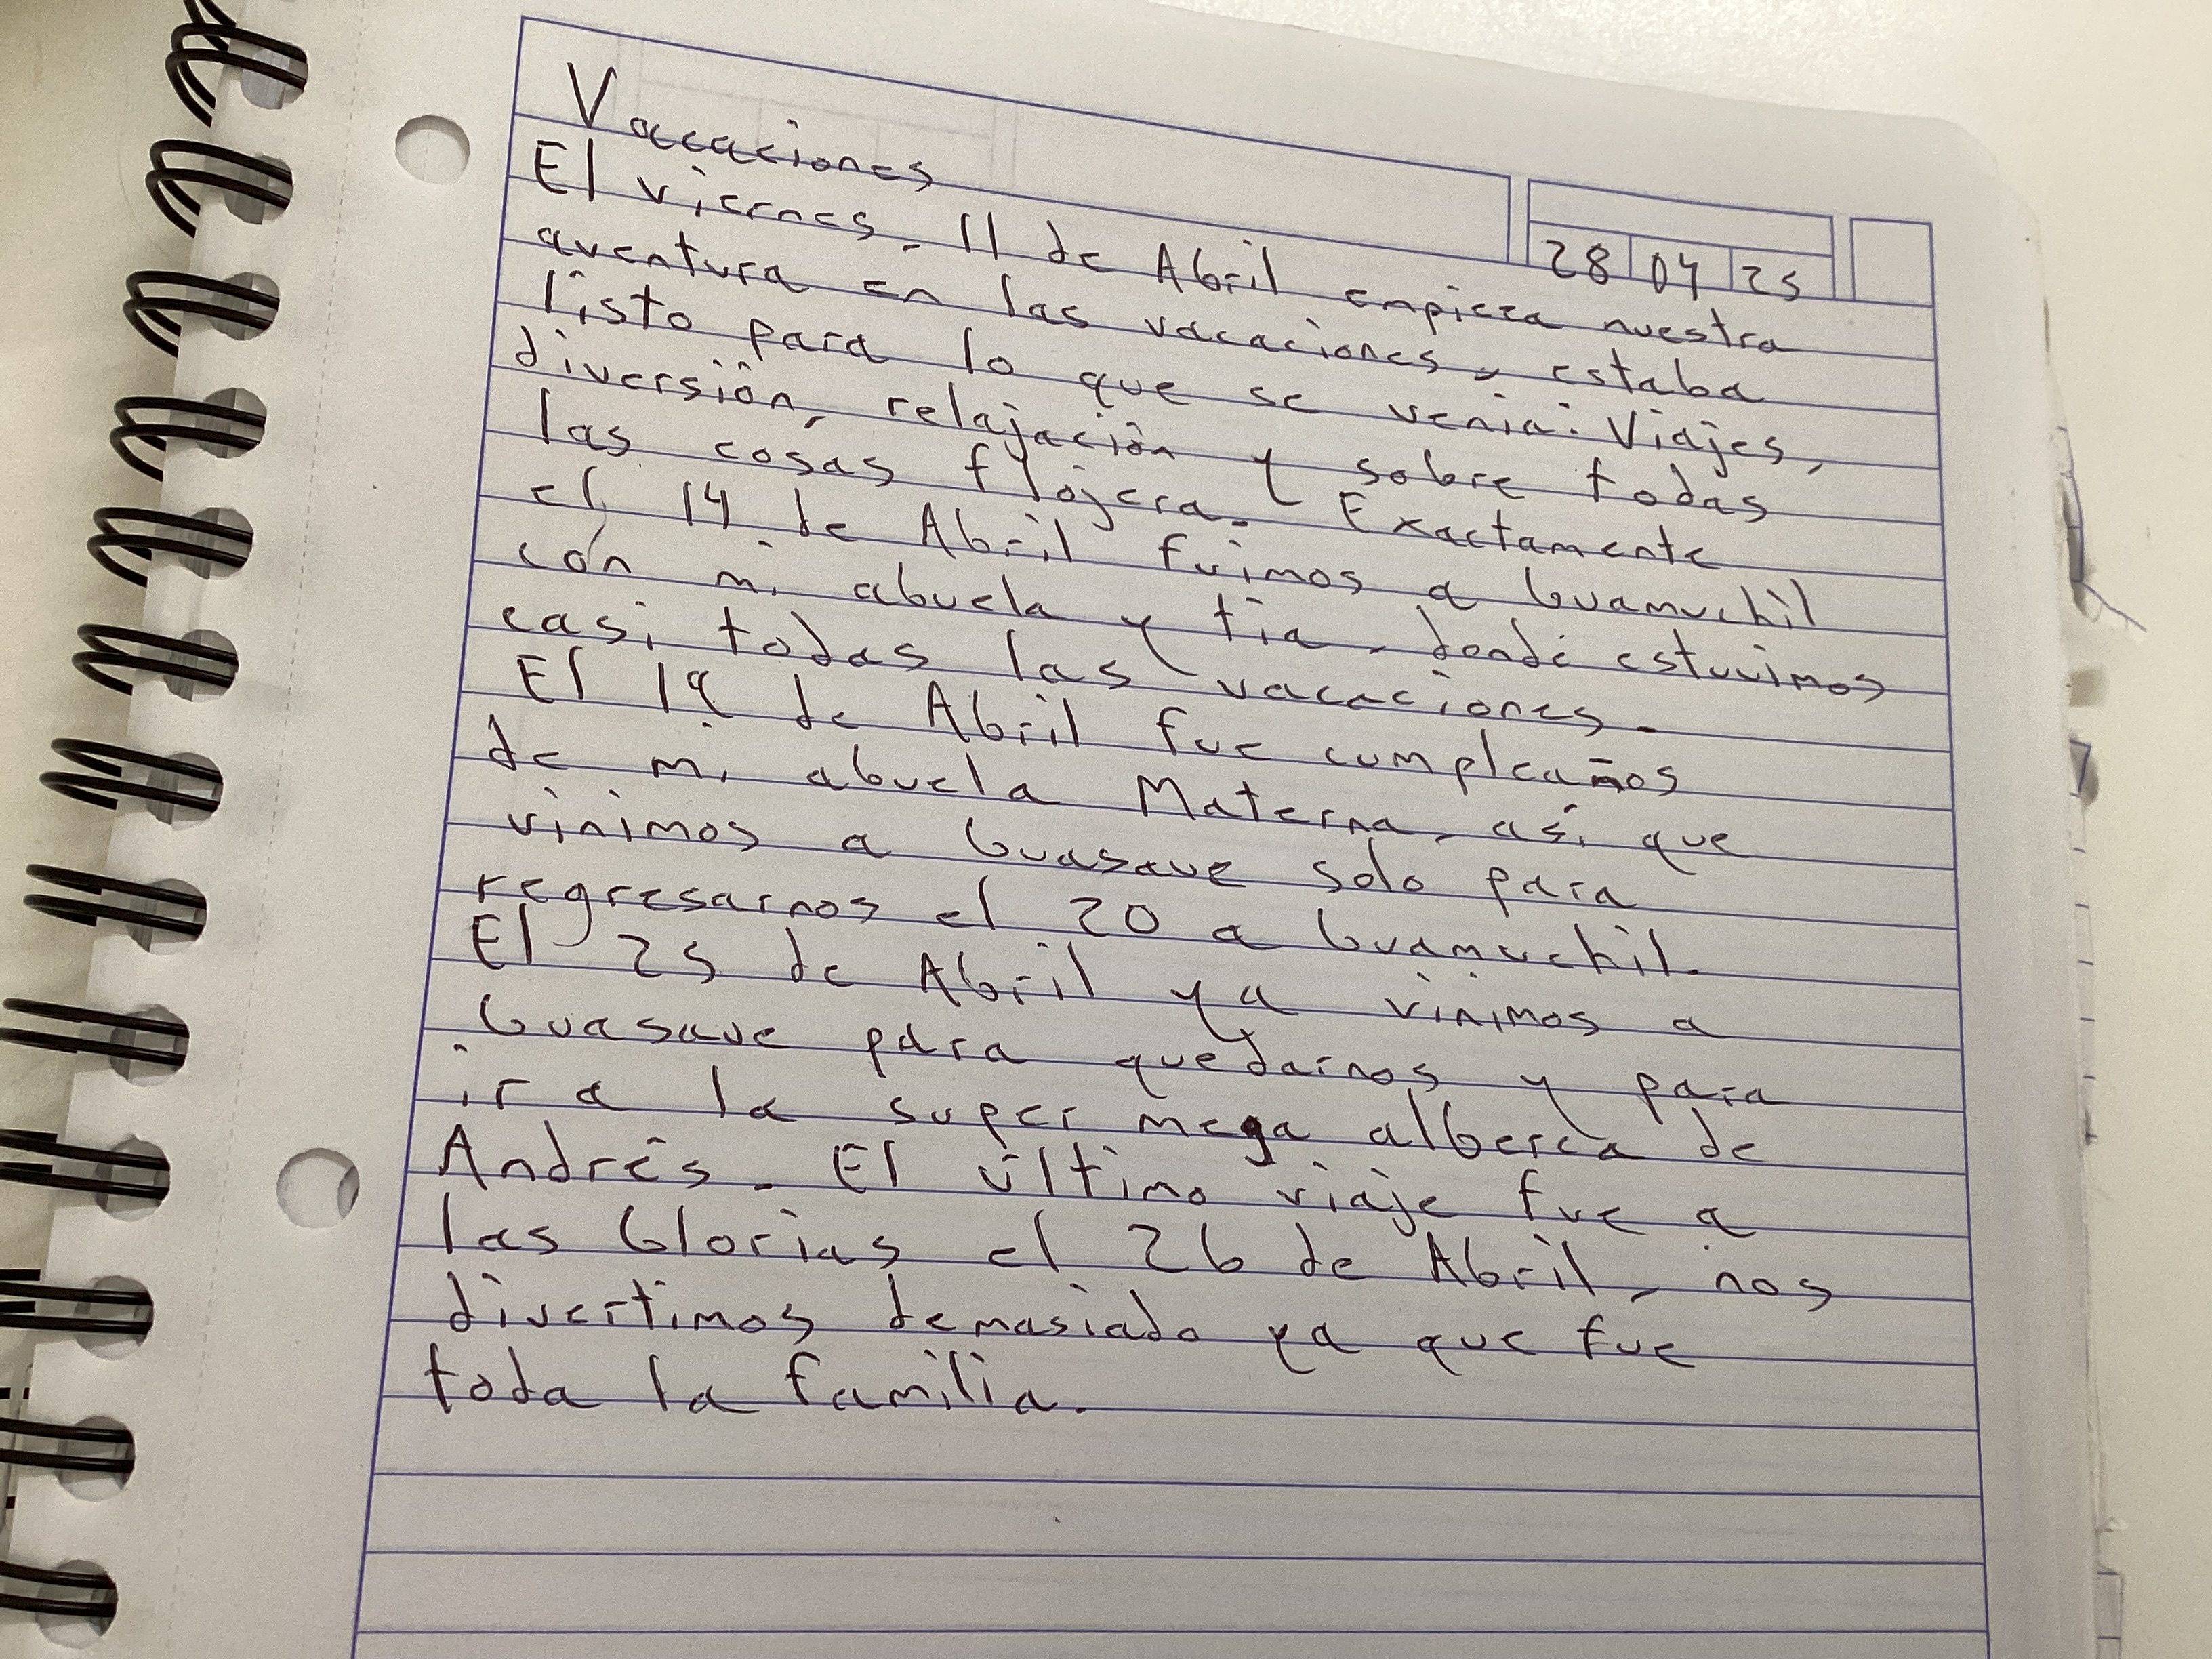 Vacaciones
28 04 25
El viernes, 11 de Abril empieza nuestra
aventura en las vacaciones, estaba
listo para lo que se venia: Viajes,
diversión, relajación y sobre todas
las cosas flojera. Exactamente
el 14 de Abril fuimos a Guamuchil
con mi abuela y tia, donde estuvimos
casi todas las vacaciones.
El 19 de Abril fue cumpleaños
de mi abuela Materna, así que
vinimos a Guasave solo para
regresarnos el 20 a Guamuchil.
El 25 de Abril ya vinimos a
Guasave para quedarnos y para
ir a la super mega alberca de
Andrés. El último viaje fue a
las Glorias el 26 de Abril, nos
divertimos demasiado ya que fue
toda la familia.